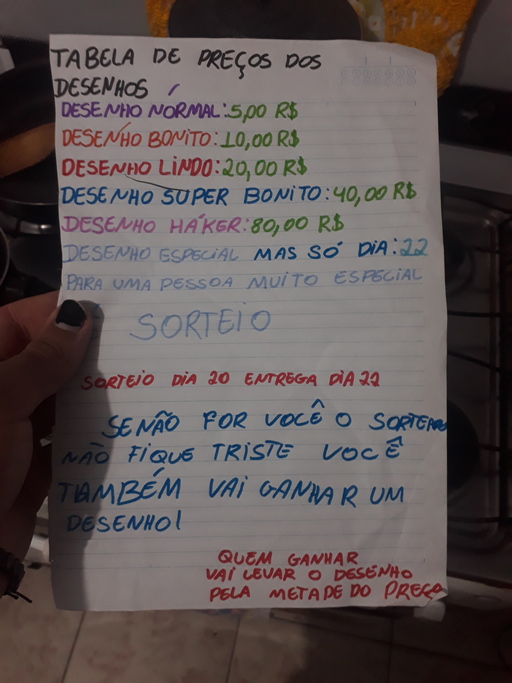 TABELA DE PREÇOS DOS
DESENHOS
DESENHO NORMAL:5,00 R$
DESENHO BONITO:10,00 R$
DESENHO LINDO:20,00 R$
DESENHO SUPER BONITO:40,00 R$
DESENHO HÁKER:80,00 R$
DESENHO ESPECIAL MAS SÓ DIA:22
PARA UMA PESSOA MUITO ESPECIAL
SORTEIO
SORTEIO DIA 20 ENTREGA DIA 22
SENÃO FOR VOCÊ O
NÃO FIQUE TRISTE VOCÊ
TAMBÉM VAI GANHAR UM
DESENHO!
QUEM GANHAR
VAI LEVAR O DESENHO
PELA METADE DO PREÇO